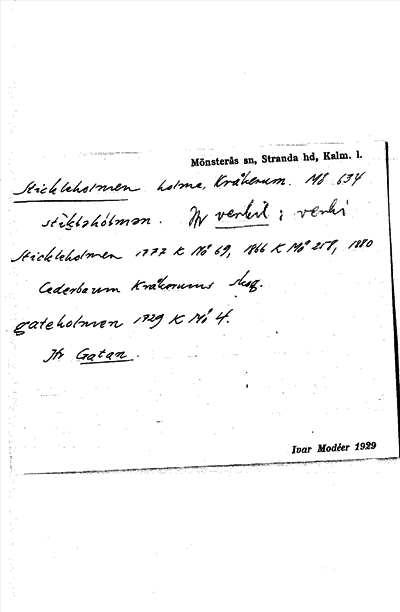 Mönsterås sn, Stranda hd, Kalm. l.
Stickleholmen holme, Kråkerum. MB 634
stikləhólmən. Jfr verkil i verki
Stickleholmen 1777 K Mö 69, 1866 K Mö 258, 1880
Cederbaum Kråkerums
gateholmen 1729 K Mö 4.
Jfr Gatan.
Ivar Modéer 1929